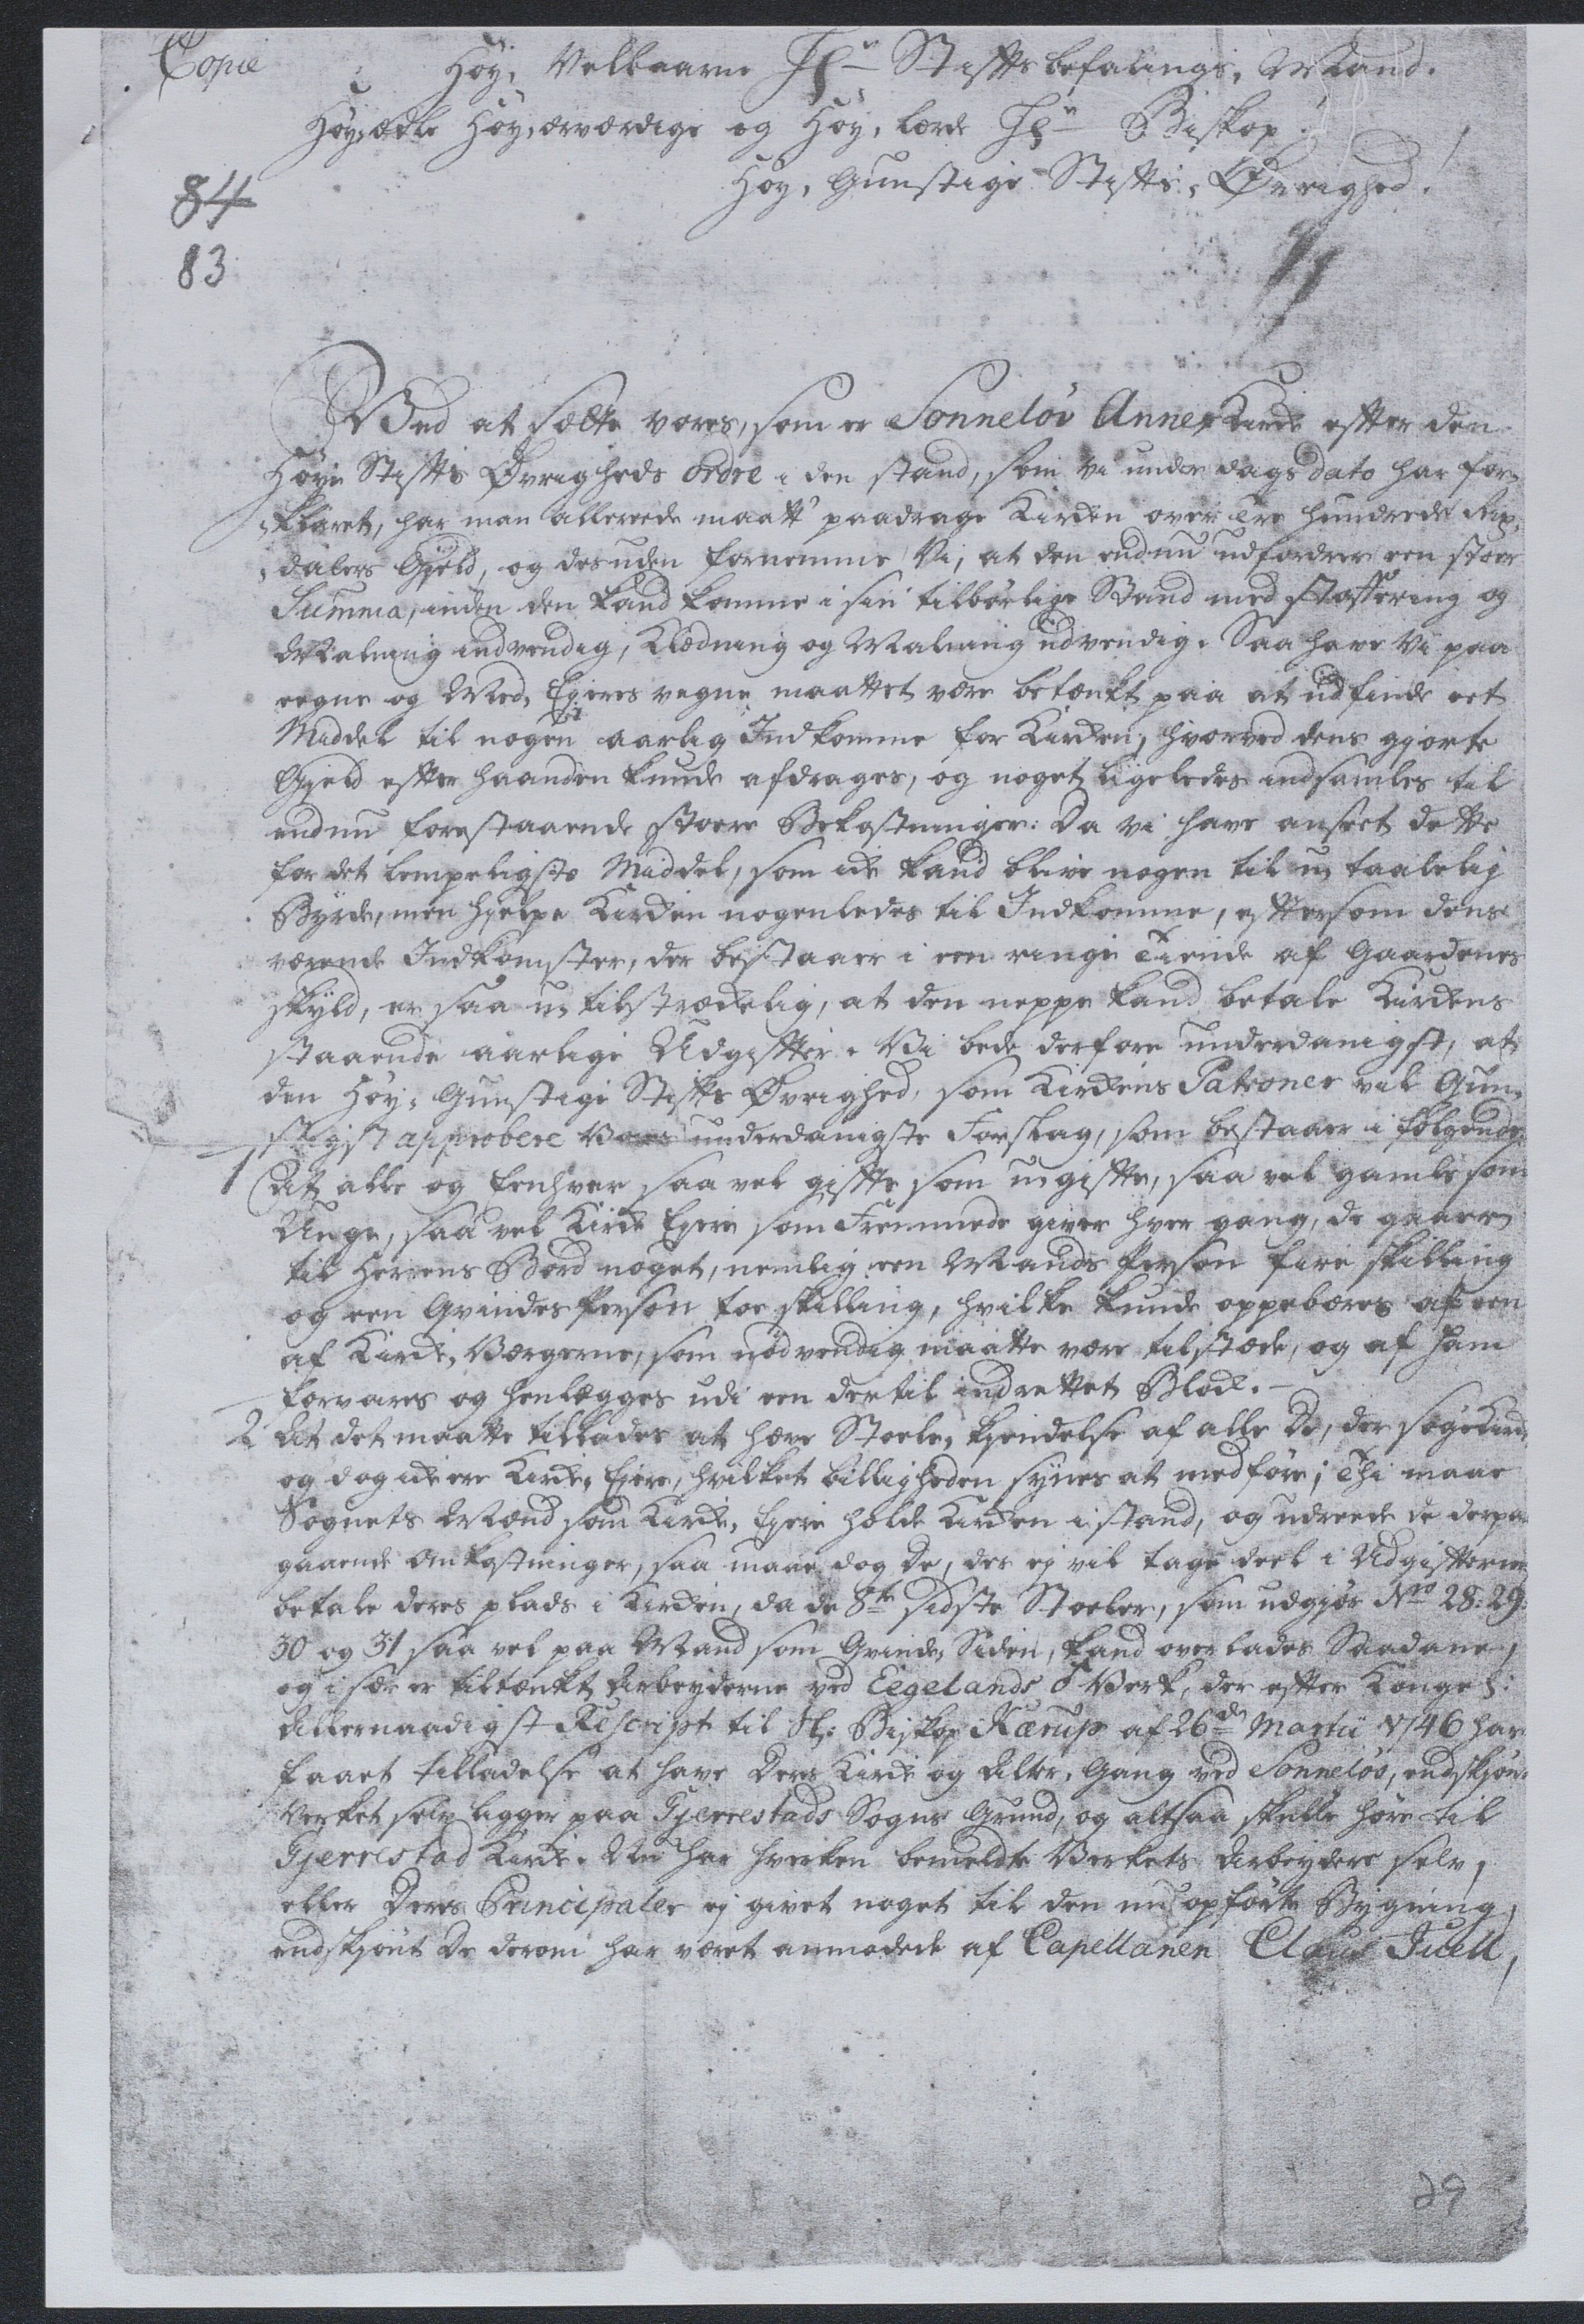 Copie
Høy, Velbaarne Hr. Stiftsbefalings, Mand.
Høy,ædle Høy,ærværdige og Høy, lærde Hr. Biskop!
Høy, Gunstige Stifts, Øvrighed!
84
83
Ved at sætte vores, som er Sønneløv Annex Kirke efter den
Høye Stifts Øvrigheds ordre i den stand, som vi under dags dato har for,
,klaret, har man allereede maatt paadrage Kirken over tre hundrede Rix,
,dalers Gjeld, og desuden fornemme Vi, at den endnu udfordrer een stoer
Summa, inden den kand komme i sin tilbørlige Stand med staffering og
Malning indvendig, Klædning og Malning udvendig. Saa have Vi paa
eegne og Med, Eyeres vegne maattet være betænkt paa at udfinde eet
Middel til nogen aarlig Indkomme for Kirken, hvorved dens gjorte
Gjeld efter haanden kunde afdrages, og noget ligeledes indsamles til
endnu forestaaende stoere Bekostninger: Da vi have anseet dette
for det lempeligste Middel, som ick kand blive nogen til u,taalelig
Byrde, men hjelpe Kirken nogenledes til Indkomme, eftersom dens
værende Indkomster, der bestaaer i een ringe Tiende af Gaardenes
skyld, er saa u,tilstrækelig, at den neppe kand betale Kirkens
staaende aarlige Udgifter. Vi bede derfore underdanigst, at
den Høy, Gunstige Stifts Øvrighed, som Kirkens Patroner vil Gun,
,stigst approbere Vores underdanigste Forslag, som bestaaer i følgende
1 At alle og Eenhver saa vel gifte som ugifte, saa vel gamle som
Unge, saa vel Kirke Eyere som Fremmede giver hver gang, de gaaer
til Herrens Bord noget, nemlig een Mands Person fire skilling
og een Qvindes Person toe skilling, hvilke kunde oppebæres af een
af Kirke, Værgerne, som nødvendig maatte være tilstæde, og af ham
forvares og henlægges udi een dertil indrettet Block.
2 At det maatte tillades at have Stoele, kjendelse af alle De, der søge Kirk,
og dog icke ere Kirke, Eyere, hvilket billigheden synes at medføre; Thi maae
Sognets Mænd som Kirke, Eyere holde Kirken i stand, og udreede de derpaa
gaaende Omkostninger, saa maae dog De, der ej vil tage deel i Udgifterne
betale deres plads i Kirken, da de 8te sidste Stoeler, som udgjør Nro 28: 29:
30 og 31 saa vel paa Mand som Qvinde, Siden, kand overlades Saadane,
og i sær er tiltænkt Arbeyderne ved Eegelands Verk, der efter Kongel:
Allernaadigst Rescript til Sl: Biskop Kærup af 26de Martii 1746 har
faaet tilladelse at have Deres Kirke og Alter, Gang ved Sønneløv, endskjønt
Verket selv ligger paa Gjerrestads Sogns Grund, og altsaa skulle høre til
Gjerrestad Kirke. Nu har hverken bemeldte Verkets Arbeydere selv,
eller Deres Principaler ej givet noget til den nu opførte Bygning,
endskjønt De derom har været anmodede af Capellanen Claus Juell,
29